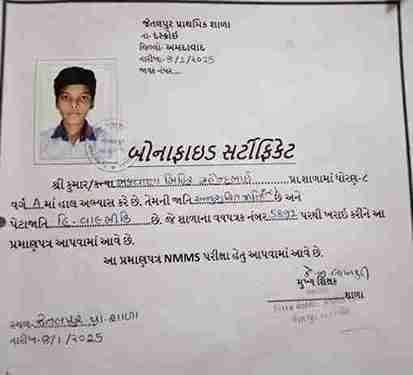 જેતલપુર પ્રાથમિક શાળા
તા- દસ્ક્રોઇ
જિલ્લો- અમદાવાદ
તારીખ-8/1/2025
જાવક નંબર-
બોનાફાઇડ સર્ટીફિકેટ
શ્રી કુમાર/કન્યા મિહિર પ્રા.શાળામાં ધોરણ-૮
વર્ગ A માં હાલ અભ્યાસ કરે છે. તેમની જાતિ છે અને
પેટાજાતિ હિ-વાલ્મીકિ છે. જે શાળાના વયપત્રક નંબર 5892 પરથી ખરાઈ કરીને આ
પ્રમાણપત્ર આપવામાં આવે છે.
આ પ્રમાણપત્ર NMMS પરીક્ષા હેતુ આપવામાં આવે છે.
મુખ્ય શિક્ષક
શાળા
સ્થળ-જેતલપુર પ્રા.શાળા
તારીખ-8/1/2025